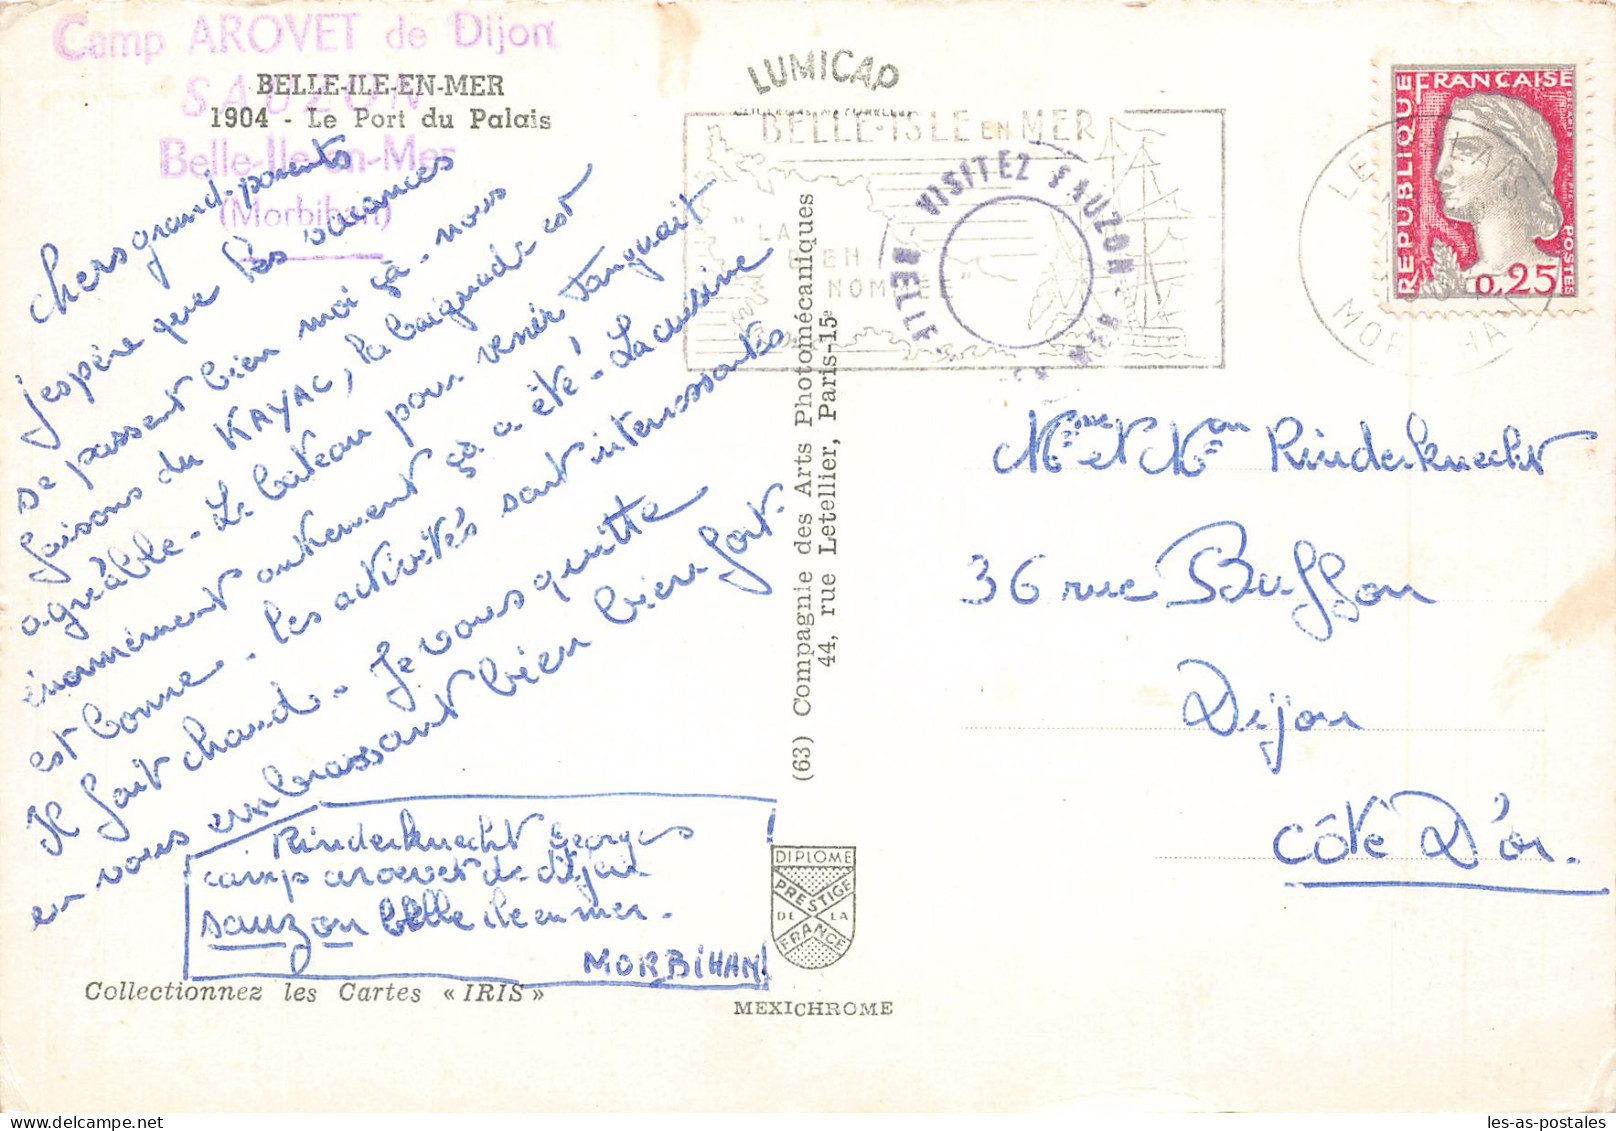 Camp AROVET de Dijon
SAUZON
Belle-Ile-en-Mer
(Morbihan)
BELLE-ILE-EN-MER
1904 - Le Port du Palais
chers grand-parents
j'espère que les vacances
se passent bien moi ça - nous
faisons du KAYAC, la baignade est
agréable - Le bateau pour venir tanguait
énormément autrement ça a été! - La cuisine
est bonne - les activités sont interessantes
Il fait chaud - Je vous quitte
en vous embrassant bien bien fort.
Rinderknecht Georges
camp arovet de dijon
sauzon belle ile en mer.
MORBIHAN
Collectionnez les Cartes « IRIS »
(63) Compagnie des Arts Photomécaniques
44, rue Letellier, Paris-15e
DIPLOME
PRESTIGE
DE LA
FRANCE
MEXICHROME
LUMICAP
BELLE-ISLE EN MER
"LA BIEN NOMMEE"
VISITEZ SAUZON
BELLE
LE PALAIS
MORBIHAN
REPUBLIQUE FRANÇAISE
POSTES
0,25
Mme et Mon Rinderknecht
36 rue Buffon
Dijon
CÔTE D'or.
les-as-postales